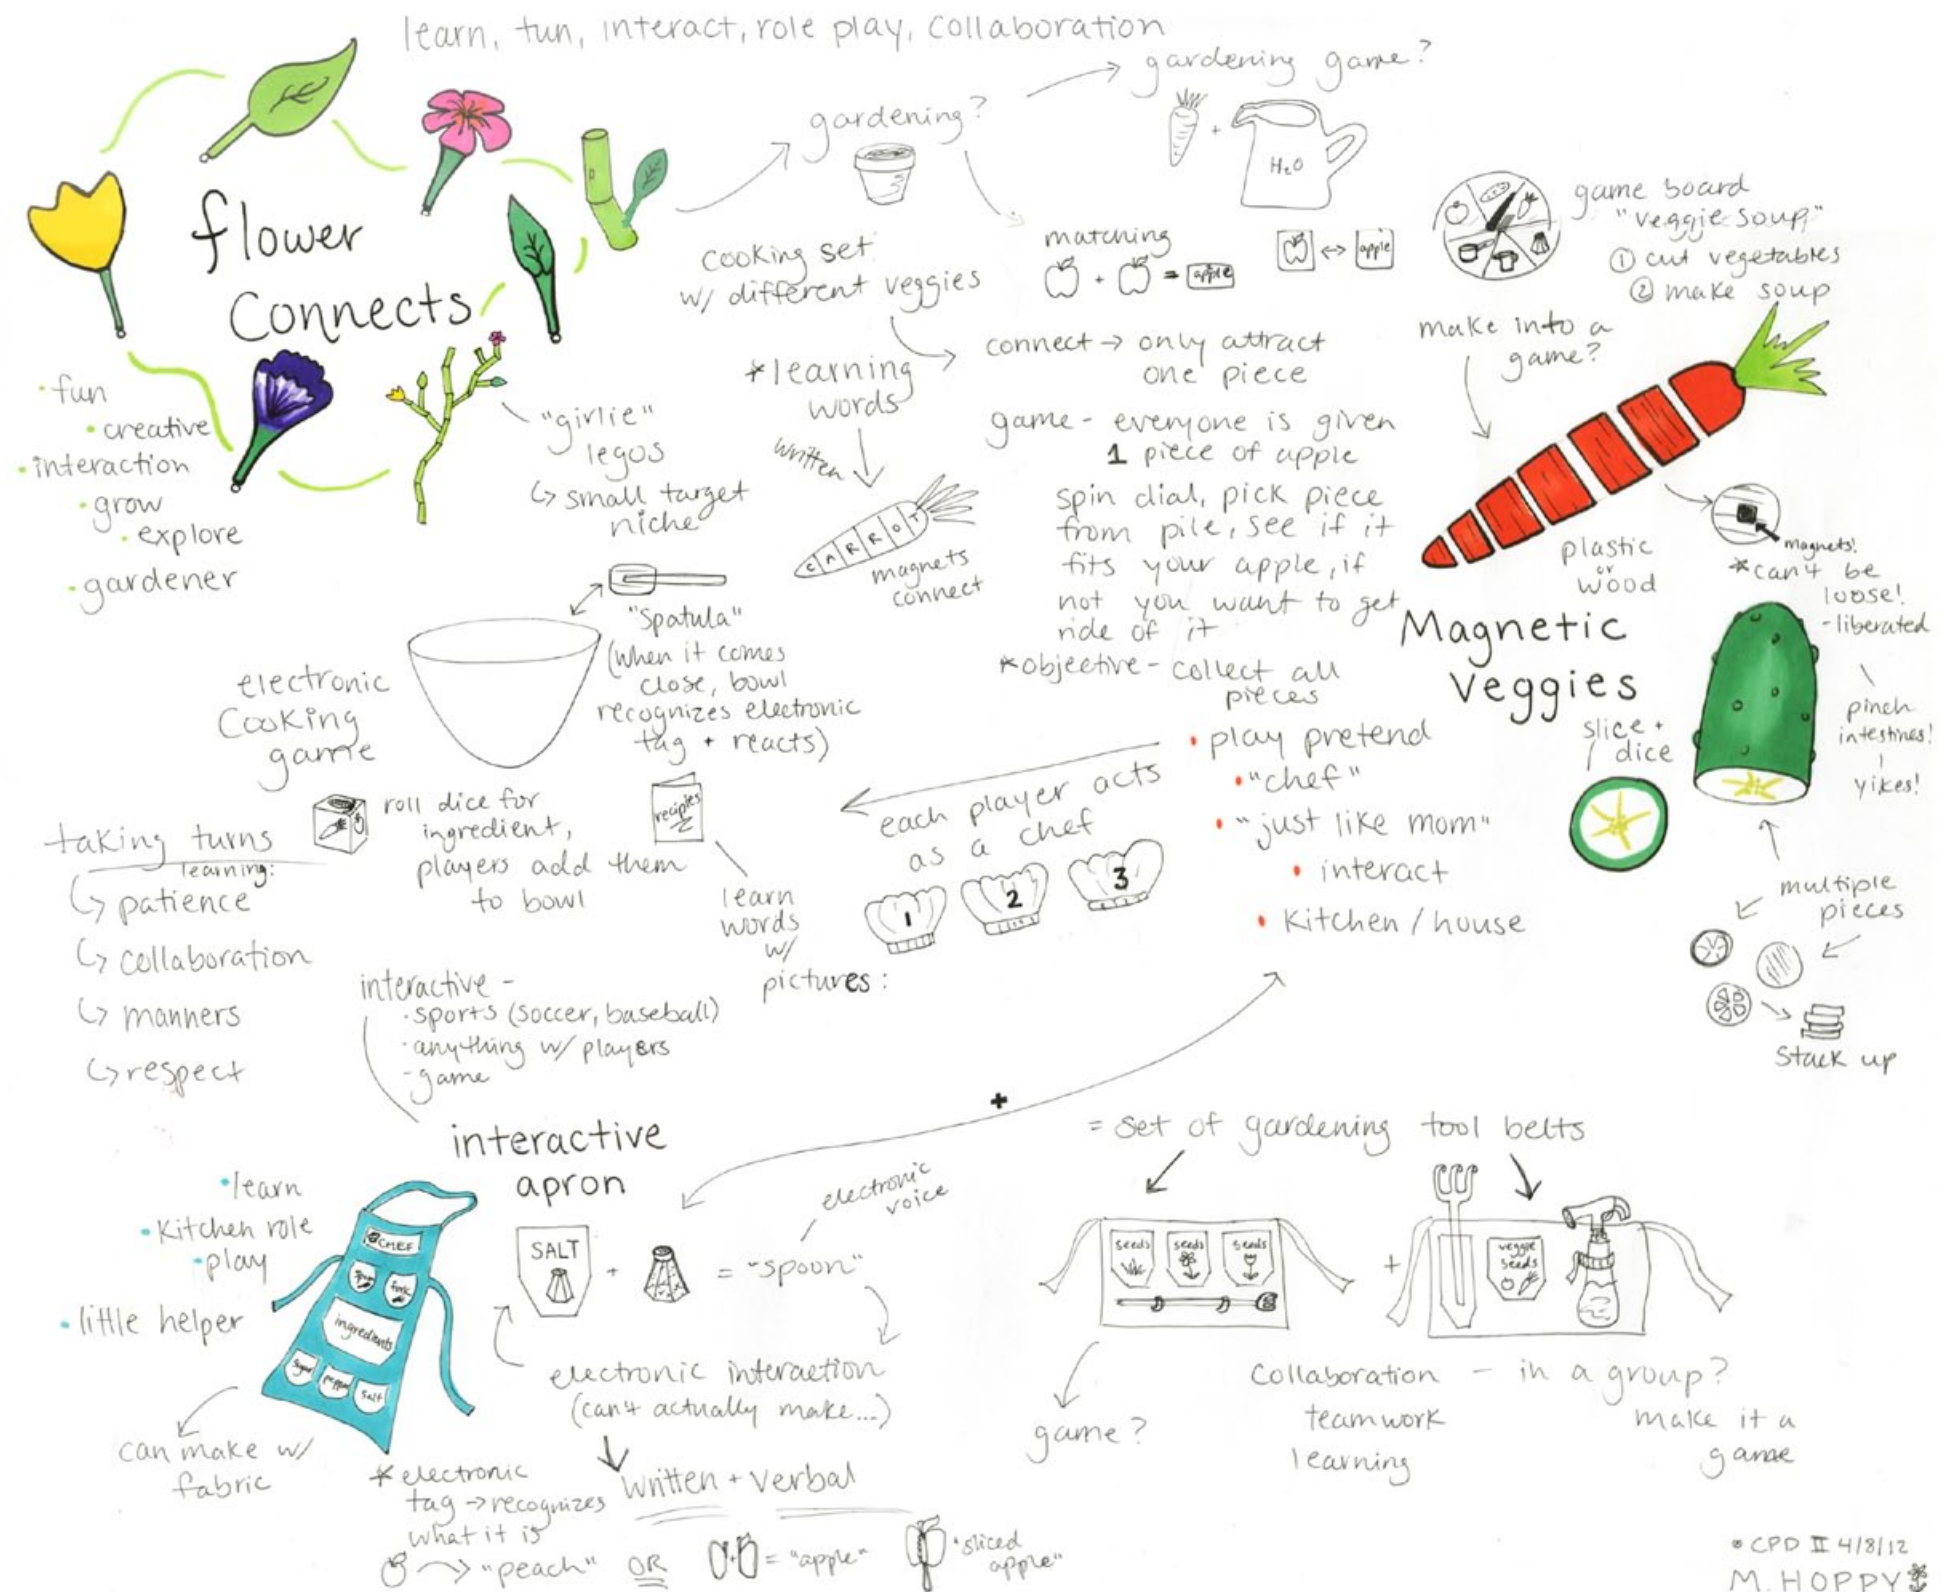 learn, fun, interact, role play, collaboration
flower
Connects
• fun
• creative
• interaction
• grow
• explore
• gardener
"girlie"
legos
↳ small target
niche
gardening?
gardening game?
H2O
cooking set
w/ different veggies
matching
+ = apple
↔ apple
game board
"veggie soup"
① cut vegetables
② make soup
make into a
game?
connect → only attract
one piece
* learning
words
written
CARROT
magnets
connect
game - everyone is given
1 piece of apple
spin dial, pick piece
from pile, see if it
fits your apple, if
not you want to get
ride of it
* objective - collect all
pieces
plastic
or
wood
magnets!
* can't be
loose!
- liberated
pinch
intestines!
yikes!
Magnetic
Veggies
slice +
dice
multiple
pieces
Stack up
• play pretend
• "chef"
• "just like mom"
• interact
• Kitchen / house
each player acts
as a chef
1 2 3
"Spatula"
(when it comes
close, bowl
recognizes electronic
tag + reacts)
electronic
Cooking
game
roll dice for
ingredient,
players add them
to bowl
recipies
learn
words
w/
pictures:
taking turns
learning:
↳ patience
↳ collaboration
↳ manners
↳ respect
interactive -
• sports (soccer, baseball)
- anything w/ players
- game
interactive
apron
• learn
• Kitchen role
• play
• little helper
CHEF
spoon
fork
ingredients
sugar
pepper
salt
can make w/
fabric
SALT
+ = "spoon"
electronic
voice
electronic interaction
(can't actually make...)
written + verbal
* electronic
tag → recognizes
what it is
"peach" OR + = "apple"
"sliced
apple"
+
= set of gardening tool belts
seeds seeds seeds
+
veggie
seeds
game?
Collaboration - in a group?
teamwork
learning
make it a
game
• CPD II 4/8/12
M. HOPPY